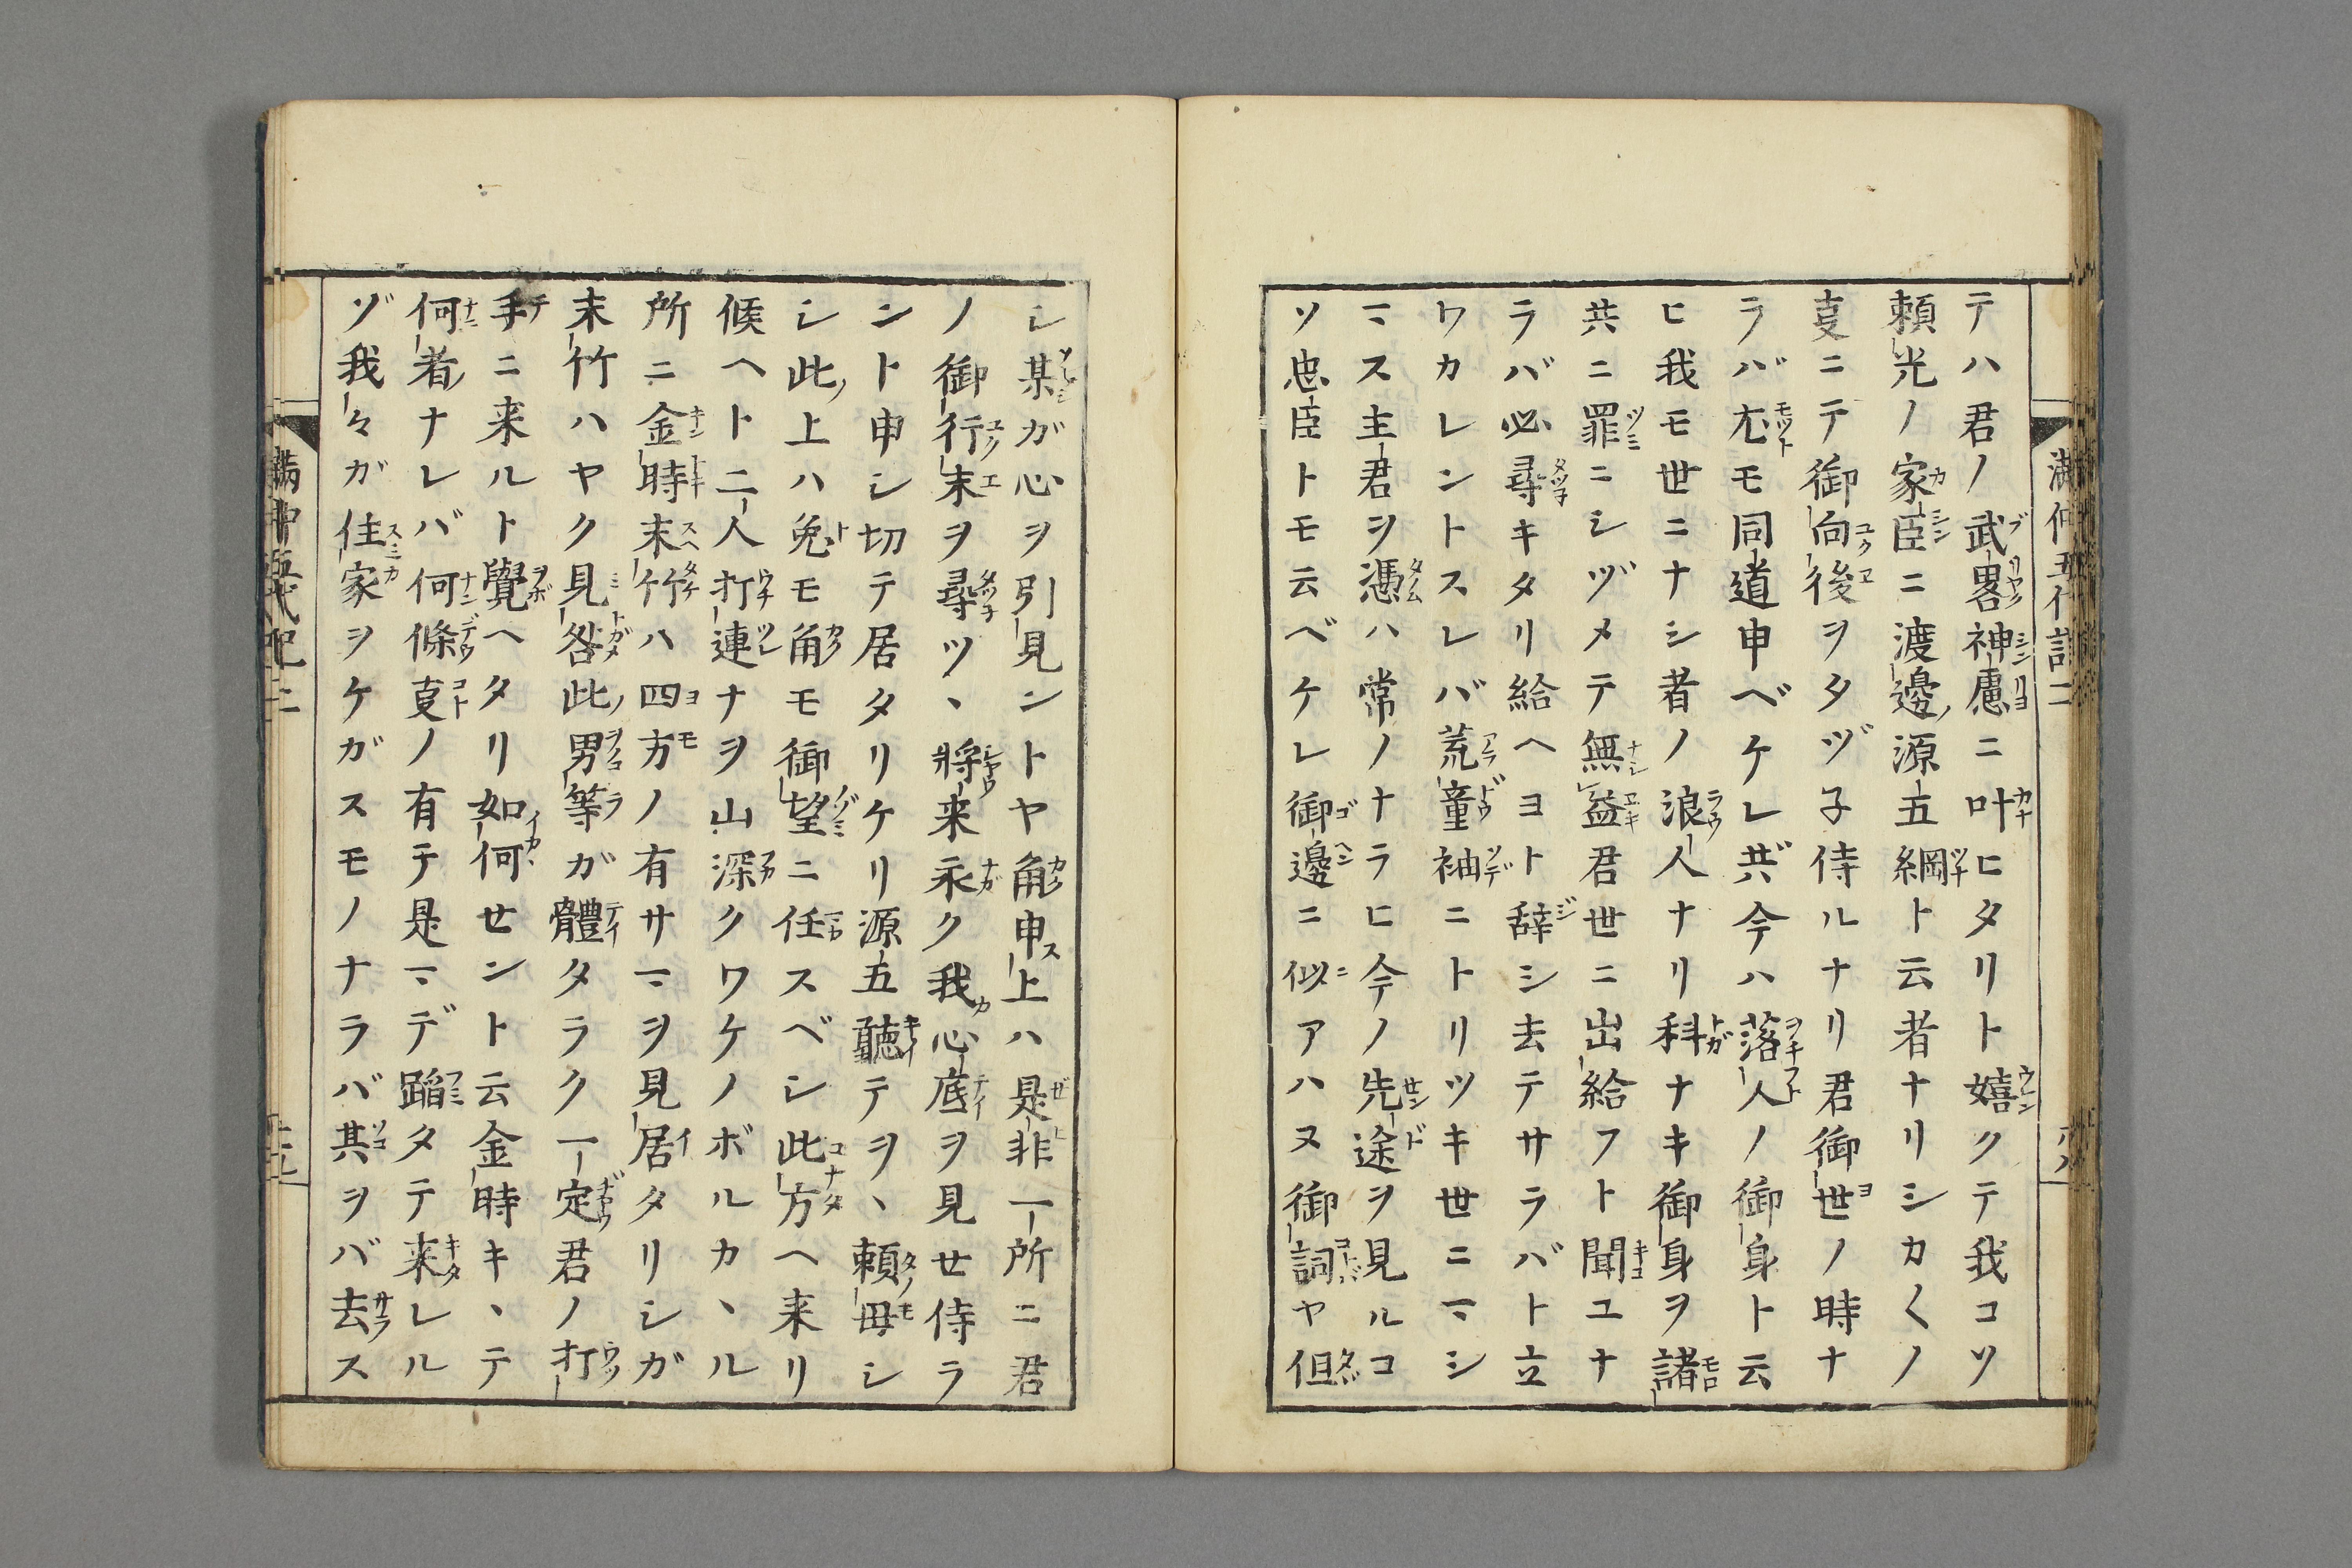 テハ君ノ武畧神慮ニ叶ヒタリト嬉クテ我コソ
頼光ノ家臣ニ渡邊源五綱ト云者ナリシカくノ
㕝ニテ御向後ヲタヅ子侍ルナリ君御世ノ時ナ
ラバ尤モ同道申ベケレ共今ハ落人ノ御身ト云
ヒ我モ世ニナシ者ノ浪人ナリ科ナキ御身ヲ諸
共ニ罪ニシヅメテ無益君世ニ出給フト聞ユナ
ラバ必尋キタリ給ヘヨト辞シ去テサラバト立
ワカレントスレバ荒童袖ニトリツキ世ニマシ
マス主君ヲ憑ハ常ノナラヒ今ノ先途ヲ見ルコ
ソ忠臣トモ云ベケレ御邊ニ似アハヌ御詞ヤ但
シ某ガ心ヲ引見ントヤ角申上ハ是非一所ニ君
ノ御行末ヲ尋ツヽ將来永ク我心底ヲ見せ侍ラ
ント申シ切テ居タリケリ源五聽テヲヽ頼母シ
シ此上ハ兔モ角モ御望ニ任スベシ此方ヘ来リ
候ヘト二人打連ナヲ山深クワケノボルカヽル
所ニ金時末竹ハ四方ノ有サマヲ見居タリシガ
末竹ハヤク見咎此男等ガ體タラク一定君ノ打
手ニ来ルト覺ヘタリ如何せント云金時キヽテ
何者ナレバ何條㕝ノ有テ是マデ蹈タテ来レル
ゾ我々ガ住家ヲケガスモノナラバ其ヲバ去ス
満仲五代記二